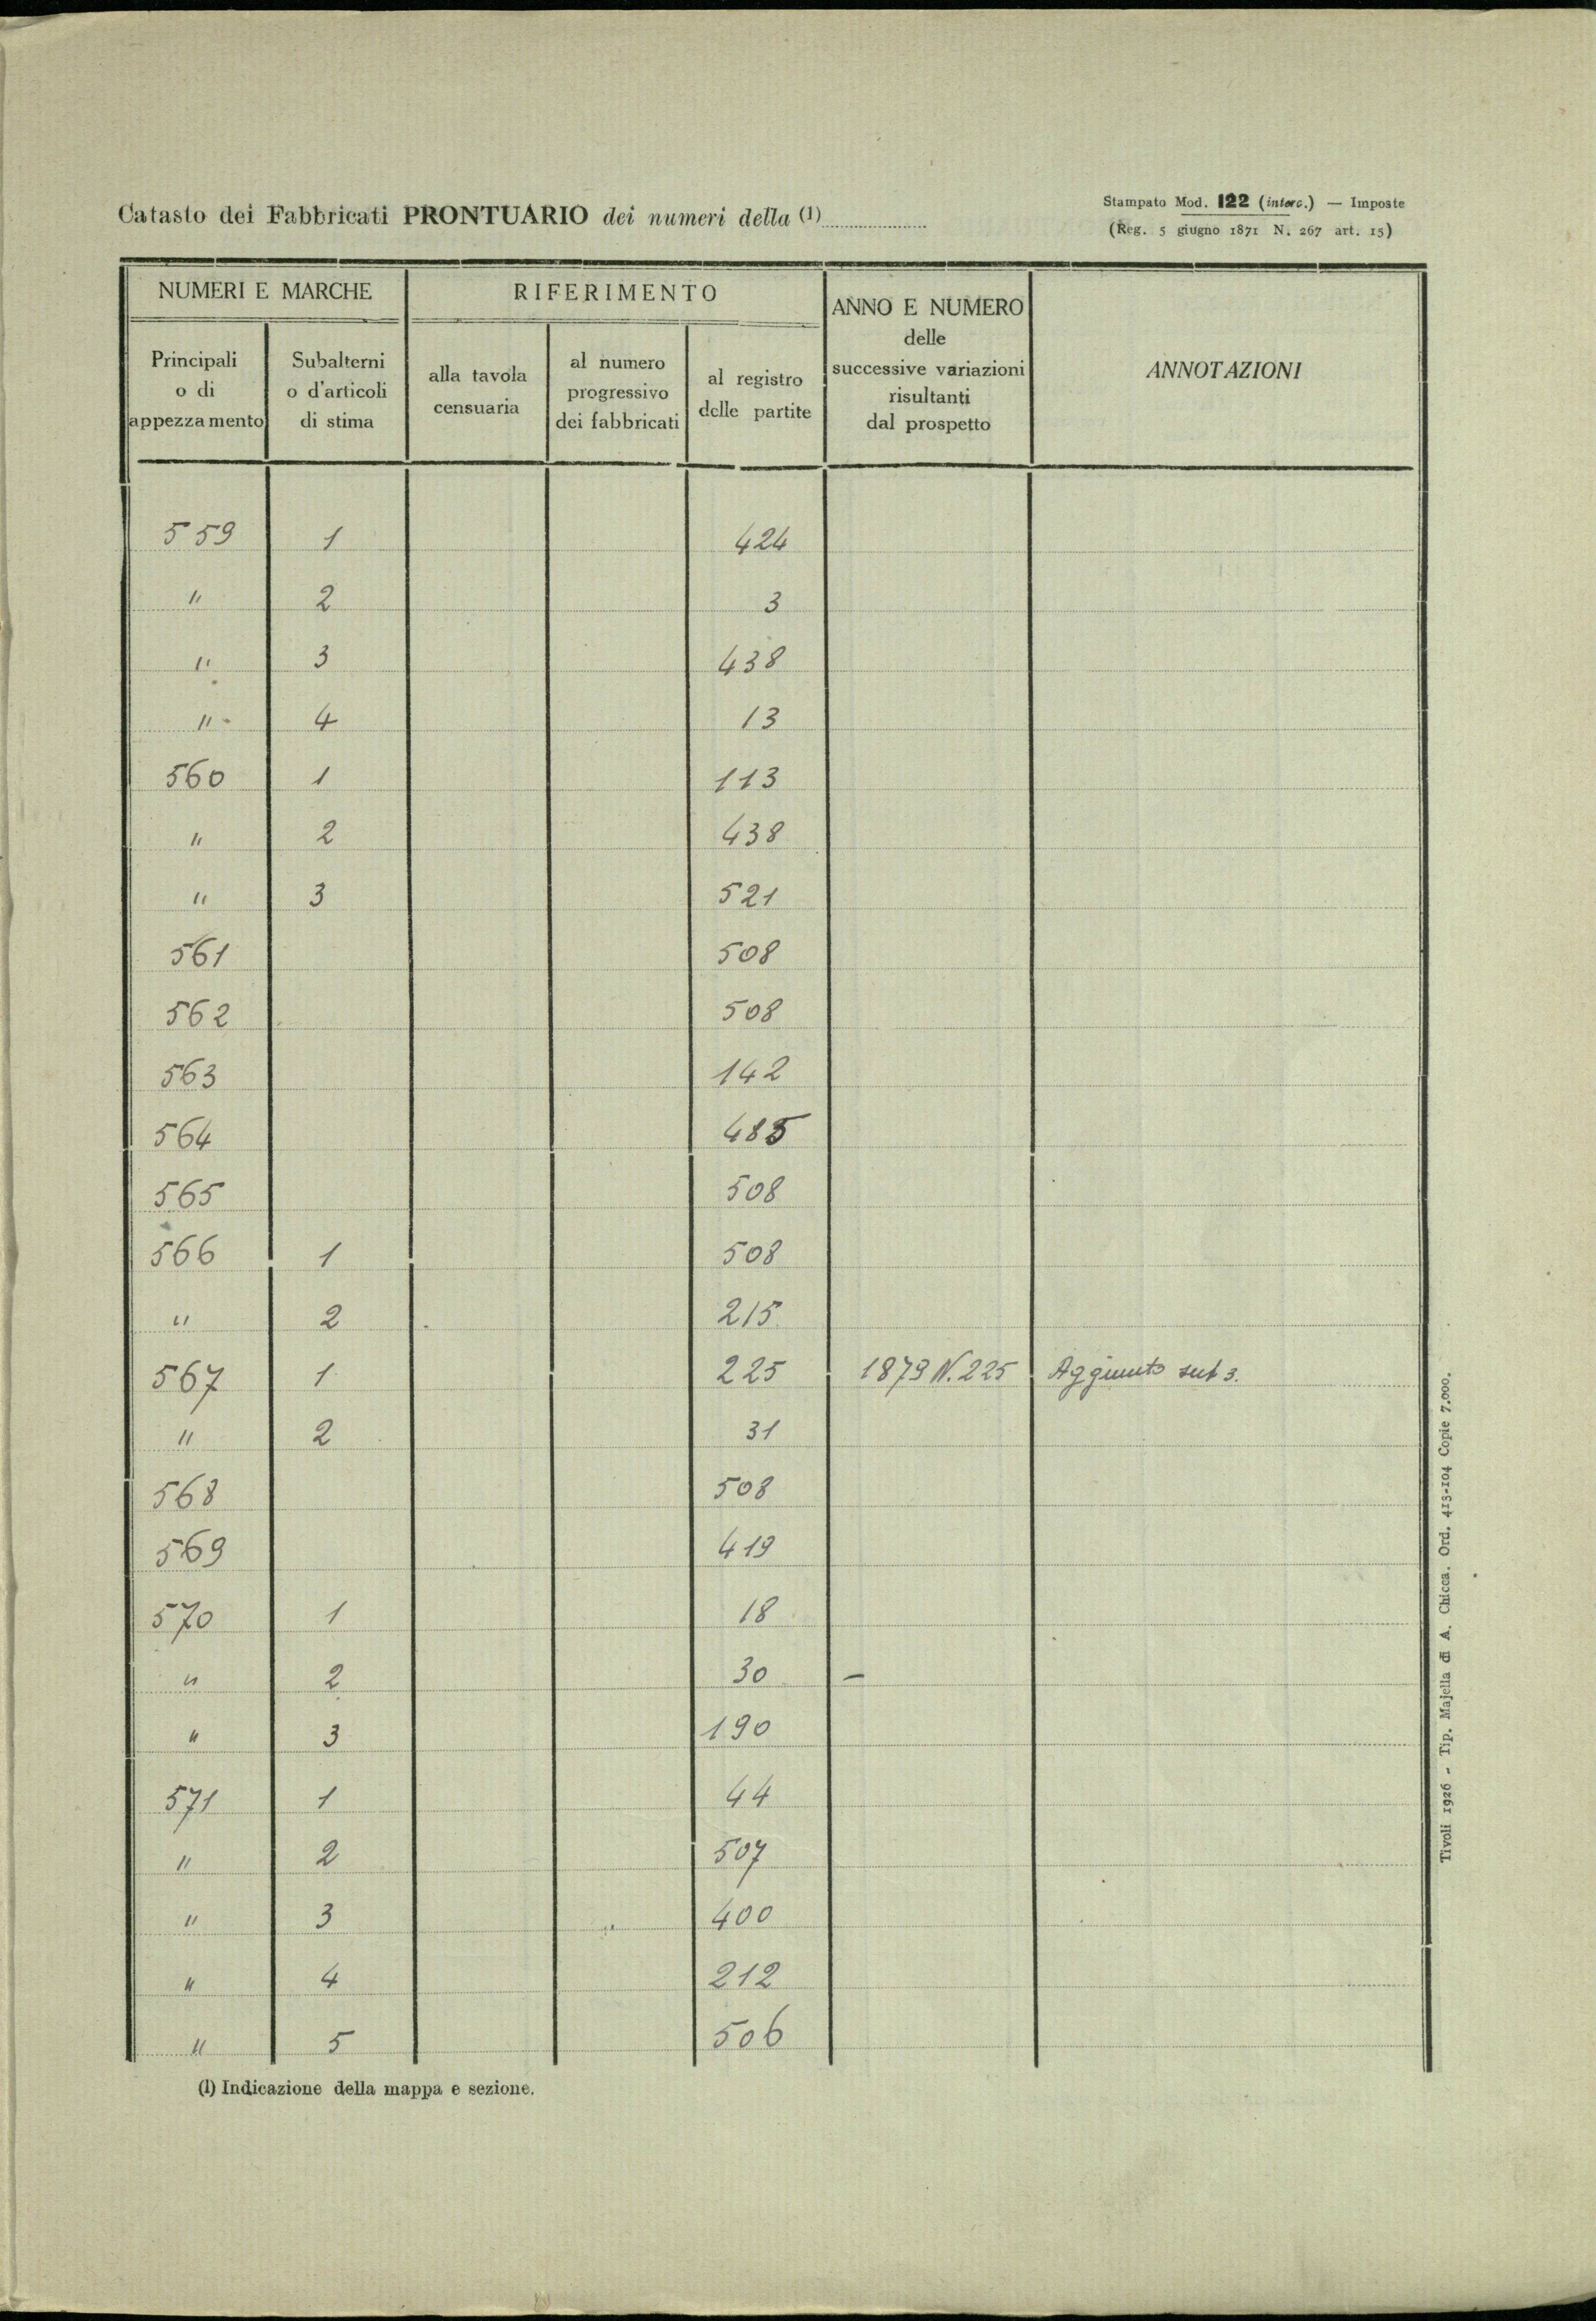 Catasto dei Fabbricati PRONTUARIO dei numeri della (1)
Stampato Mod. 122 (interc.) — Imposte
(Reg. 5 giugno 1871 N. 267 art. 15)
NUMERI E MARCHE
RIFERIMENTO
ANNO E NUMERO
delle
successive variazioni
risultanti
dal prospetto
ANNOTAZIONI
Principali
o di
appezzamento
Subalterni
o d'articoli
di stima
alla tavola
censuaria
al numero
progressivo
dei fabbricati
al registro
delle partite
559 1 424
" 2 3
" 3 438
" 4 13
560 1 113
" 2 438
" 3 521
561 508
562 508
563 142
564 485
565 508
566 1 508
" 2 215
567 1 225 1879 N. 225 Aggiunto sub 3.
" 2 31
568 508
569 419
570 1 18
" 2 30 –
" 3 190
571 1 44
" 2 507
" 3 400
" 4 212
" 5 506
(1) Indicazione della mappa e sezione.
Tivoli 1926 - Tip. Majella di A. Chicca. Ord. 413-104 Copie 7.000.